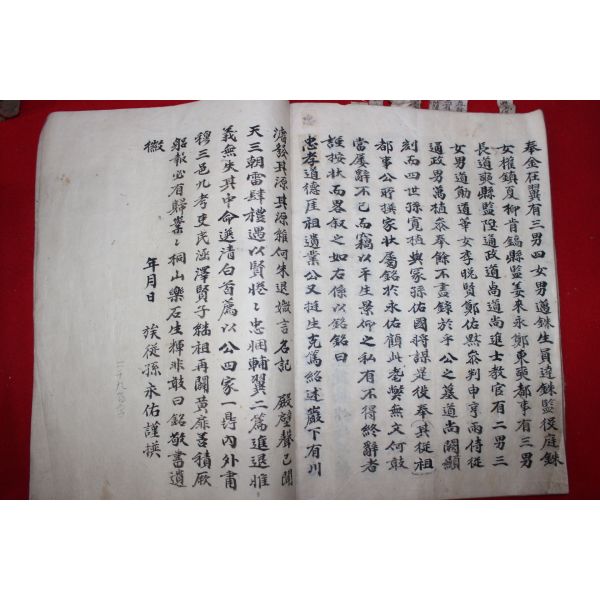 奉金在翼有三男四女男邁銖生員達銖監役庭銖
女權鎮夏柳肯鎬縣監姜來永鄭東奭都事有三男
長道奭縣監陞通政道尚道尚進士教官有二男三
女男道勛道華女李晚賢鄭佑默參判申享雨侍從
通政男萬植參奉餘不盡錄於乎公之墓道尚闕顯
刻而四世孫寬植與冢孫佑國將謀是役奉其從祖
都事公所撰家狀屬銘於永佑顧此老癃無文何敢
當屢辭不已而竊以平生景仰之私有不得終辭者
謹按狀而畧叙之如右係以銘銘曰
忠孝道德厓祖遺業公又挺生克篤紹述巖下有川
濬發其源其源維何朱退嫩言名記殿壁聲已聞
天三朝雷肆禮遇以賢惓惓忠悃輔翼一篇進退惟
義無失其中命選清白首薦以公四家一鼎內外肅
穆三邑九考吏民涵澤賢子繼祖再闢黃扉善積厥
躬報必有歸業業桐山樂石生輝非敢曰銘敬書遺
檄
年月日 族從孫永佑謹撰